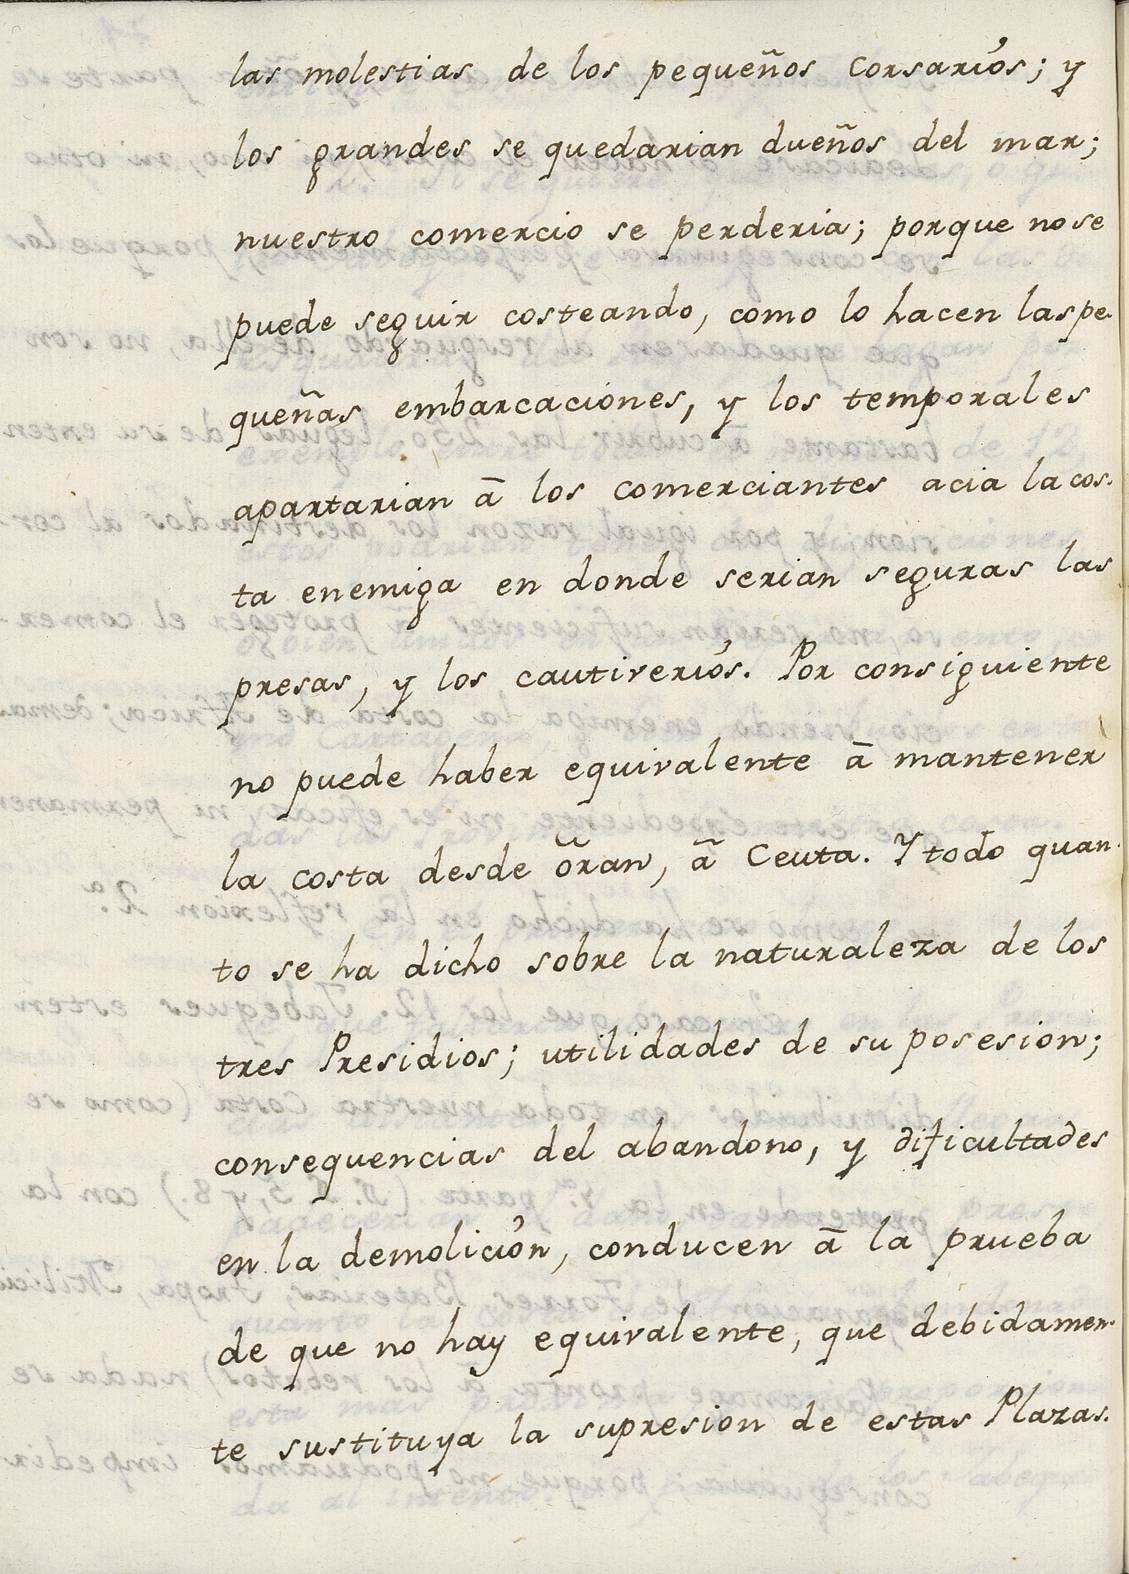 las molestias de los pequeños Corsariós; y
los grandes se quedarian dueños del mar;
nuestro comercio se perderia; porque no se
puede seguir costeando, como lo hacen las pe-
queñas embarcaciónes, y los temporales
apartarian ā los comerciantes acia la cos-
ta enemiga en donde serian seguras las
presas, y los cautiveriós. Por consiguiente
no puede haber equivalente ā mantener
la costa desde õran, ã Ceuta. Y todo quan-
to se ha dicho sobre la naturaleza de los
tres Presidios; utilidades de su posesion;
consequencias del abandono, y dificultades
en la demolición, conducen ā la prueba
de que no hay equivalente, que debidamen-
te sustituya la supresion de estas Plazas.